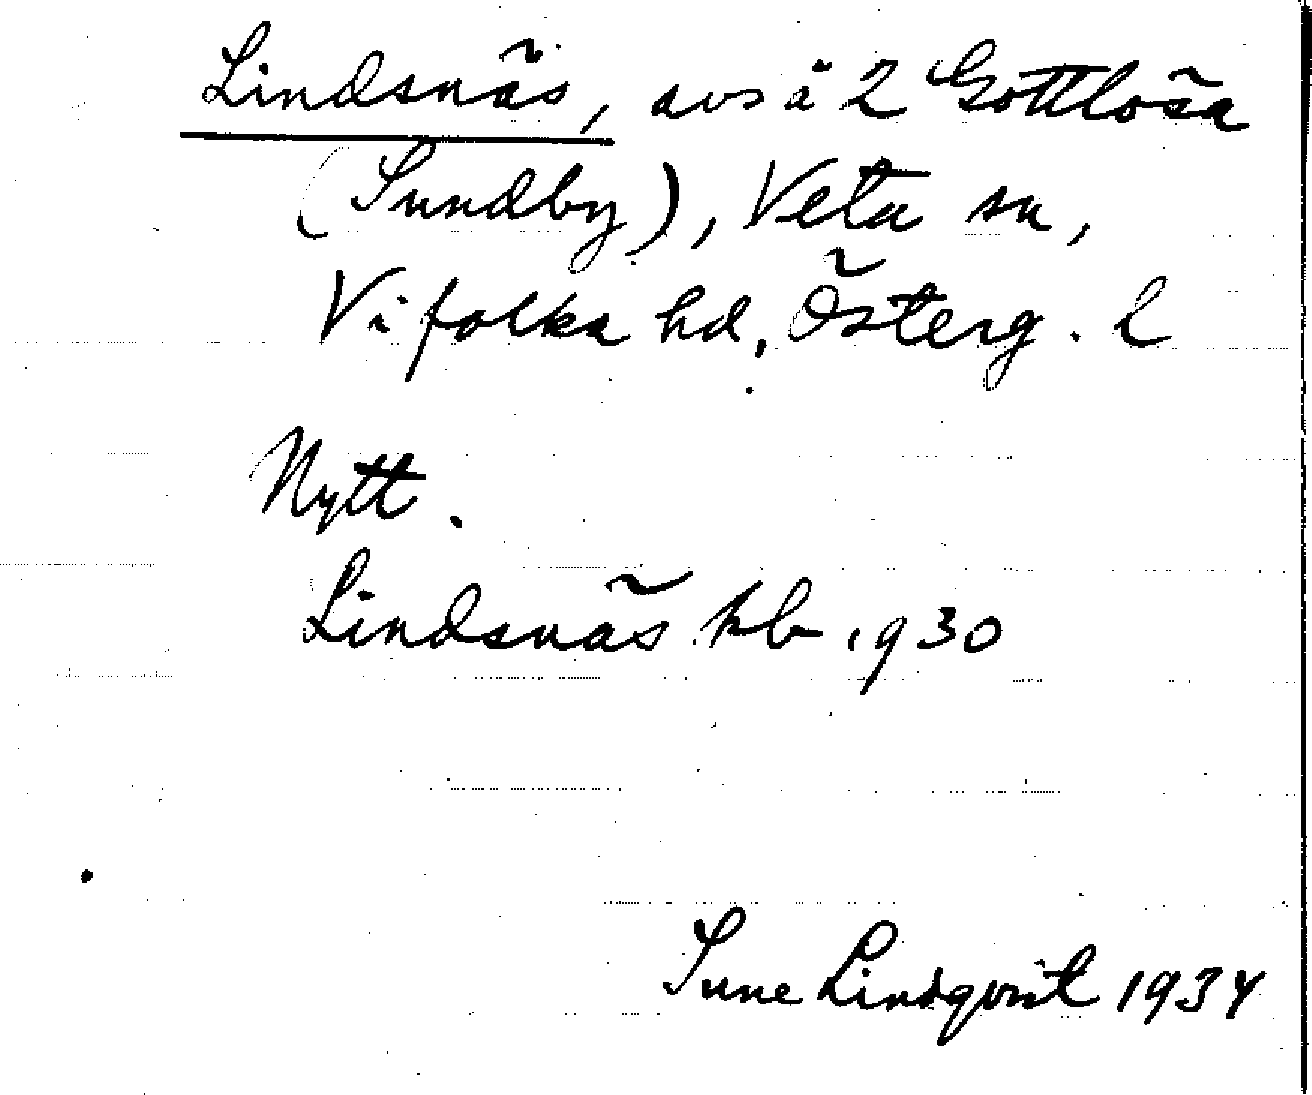 Lindsnäs, avs å 2 Gottlösa
(Sundby), Veta sn,
Vifolka hd, Österg. l
Nytt.
Lindsnäs kb 1930
Sune Lindqvist 1934